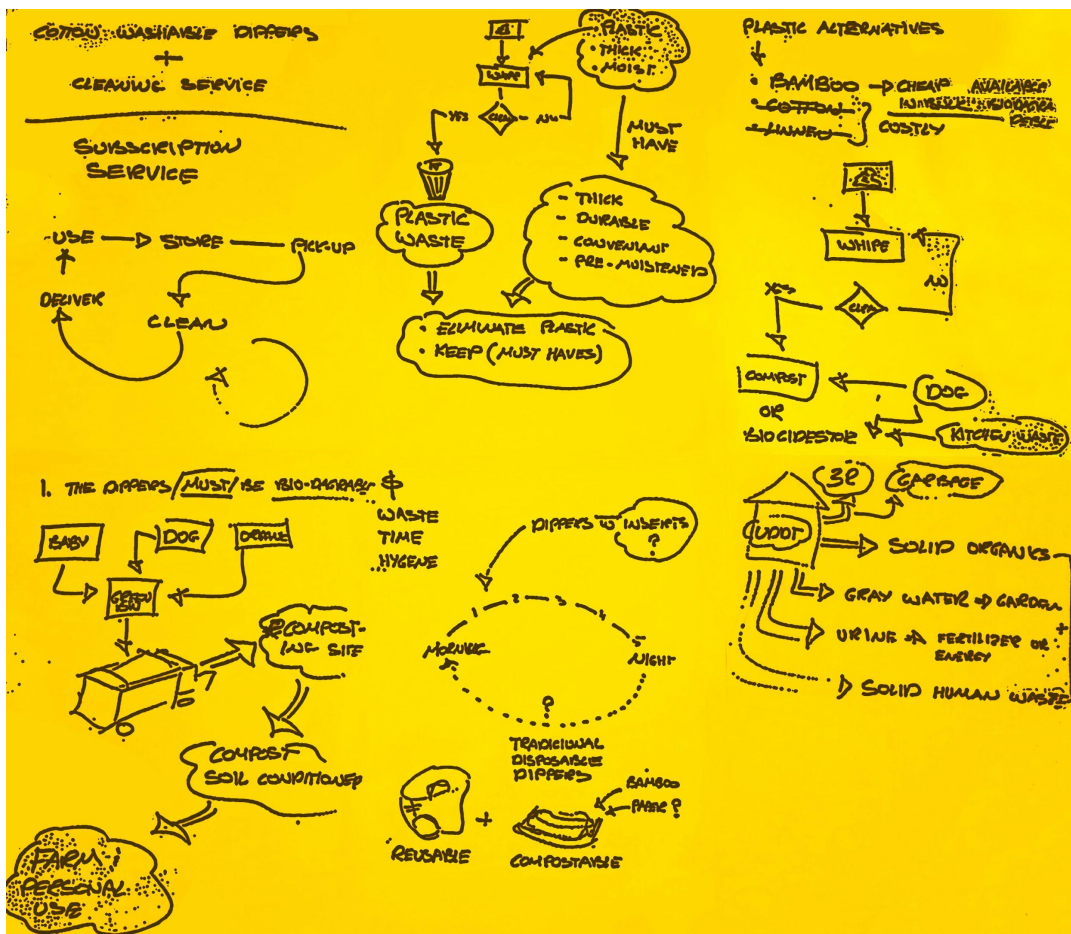 COTTON WASHABLE DIPPERS
+
CLEANING SERVICE
SUBSCRIPTION
SERVICE
USE
STORE
PICK-UP
DELIVER
CLEAN
WHIPE
YES
CLEAN
NO
PLASTIC
• THICK
• MOIST
MUST
HAVE
PLASTIC
WASTE
- THICK
- DURABLE
- CONVENIANT
- PRE-MOISTENED
• ELIMINATE PLASTIC
• KEEP (MUST HAVES)
PLASTIC ALTERNATIVES
• BAMBOO
CHEAP AVAILABLE
• COTTON
• LINNEN
COSTLY
WHIPE
NO
YES
CLEAN
COMPOST
OR
DOG
KITCHEN WASTE
1. THE DIPPERS /MUST/ BE
&
WASTE
TIME
HYGENE
BABY
DOG
GREEN
BIN
COMPOST-
ING SITE
COMPOST
SOIL CONDITIONER
FARM /
PERSONAL
USE
DIPPERS W INSERTS
?
1 2 3 4 5
MORNING
NIGHT
?
TRADICIONAL
DISPOSABLE
DIPPERS
REUSABLE
+
COMPOSTABLE
BAMBOO
?
3R
GARBAGE
SOLID ORGANICS
GRAY WATER ⇒ GARDEN
+
URINE ⇒ FERTILIZER OR
ENERGY
SOLID HUMAN WASTE